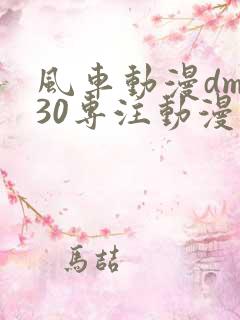 風車動漫dm
30専注動漫
馬喆